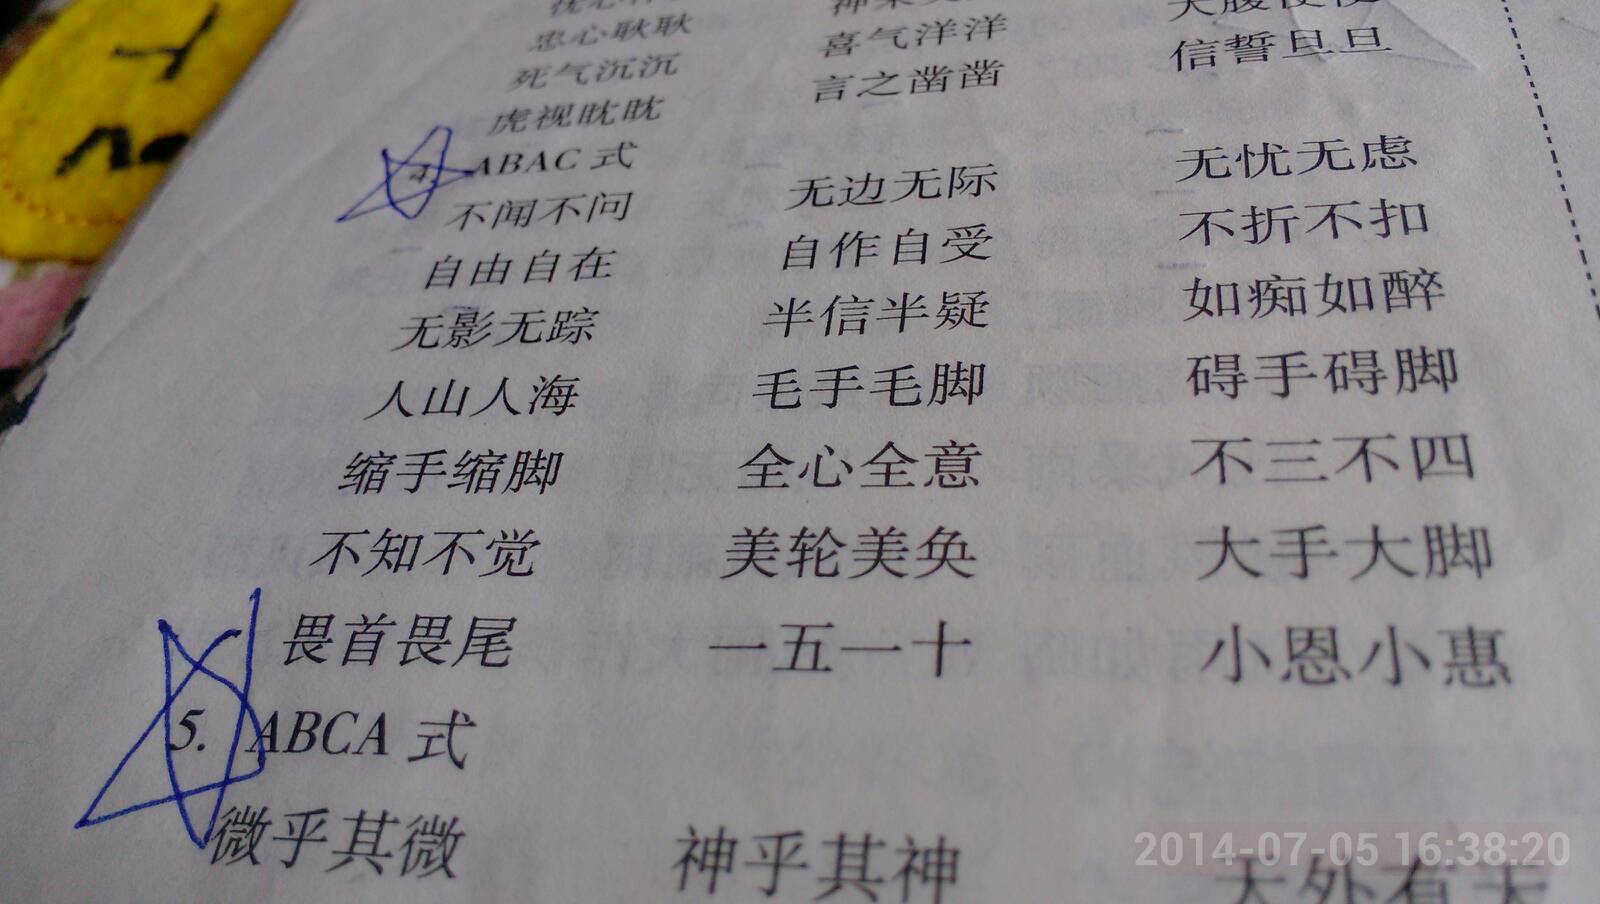 忠心耿耿 喜气洋洋 信誓旦旦
死气沉沉 言之凿凿
虎视眈眈
4. ABAC 式
不闻不问 无边无际 无忧无虑
自由自在 自作自受 不折不扣
无影无踪 半信半疑 如痴如醉
人山人海 毛手毛脚 碍手碍脚
缩手缩脚 全心全意 不三不四
不知不觉 美轮美奂 大手大脚
畏首畏尾 一五一十 小恩小惠
5. ABCA 式
微乎其微 神乎其神 天外有天
2014-07-05 16:38:20